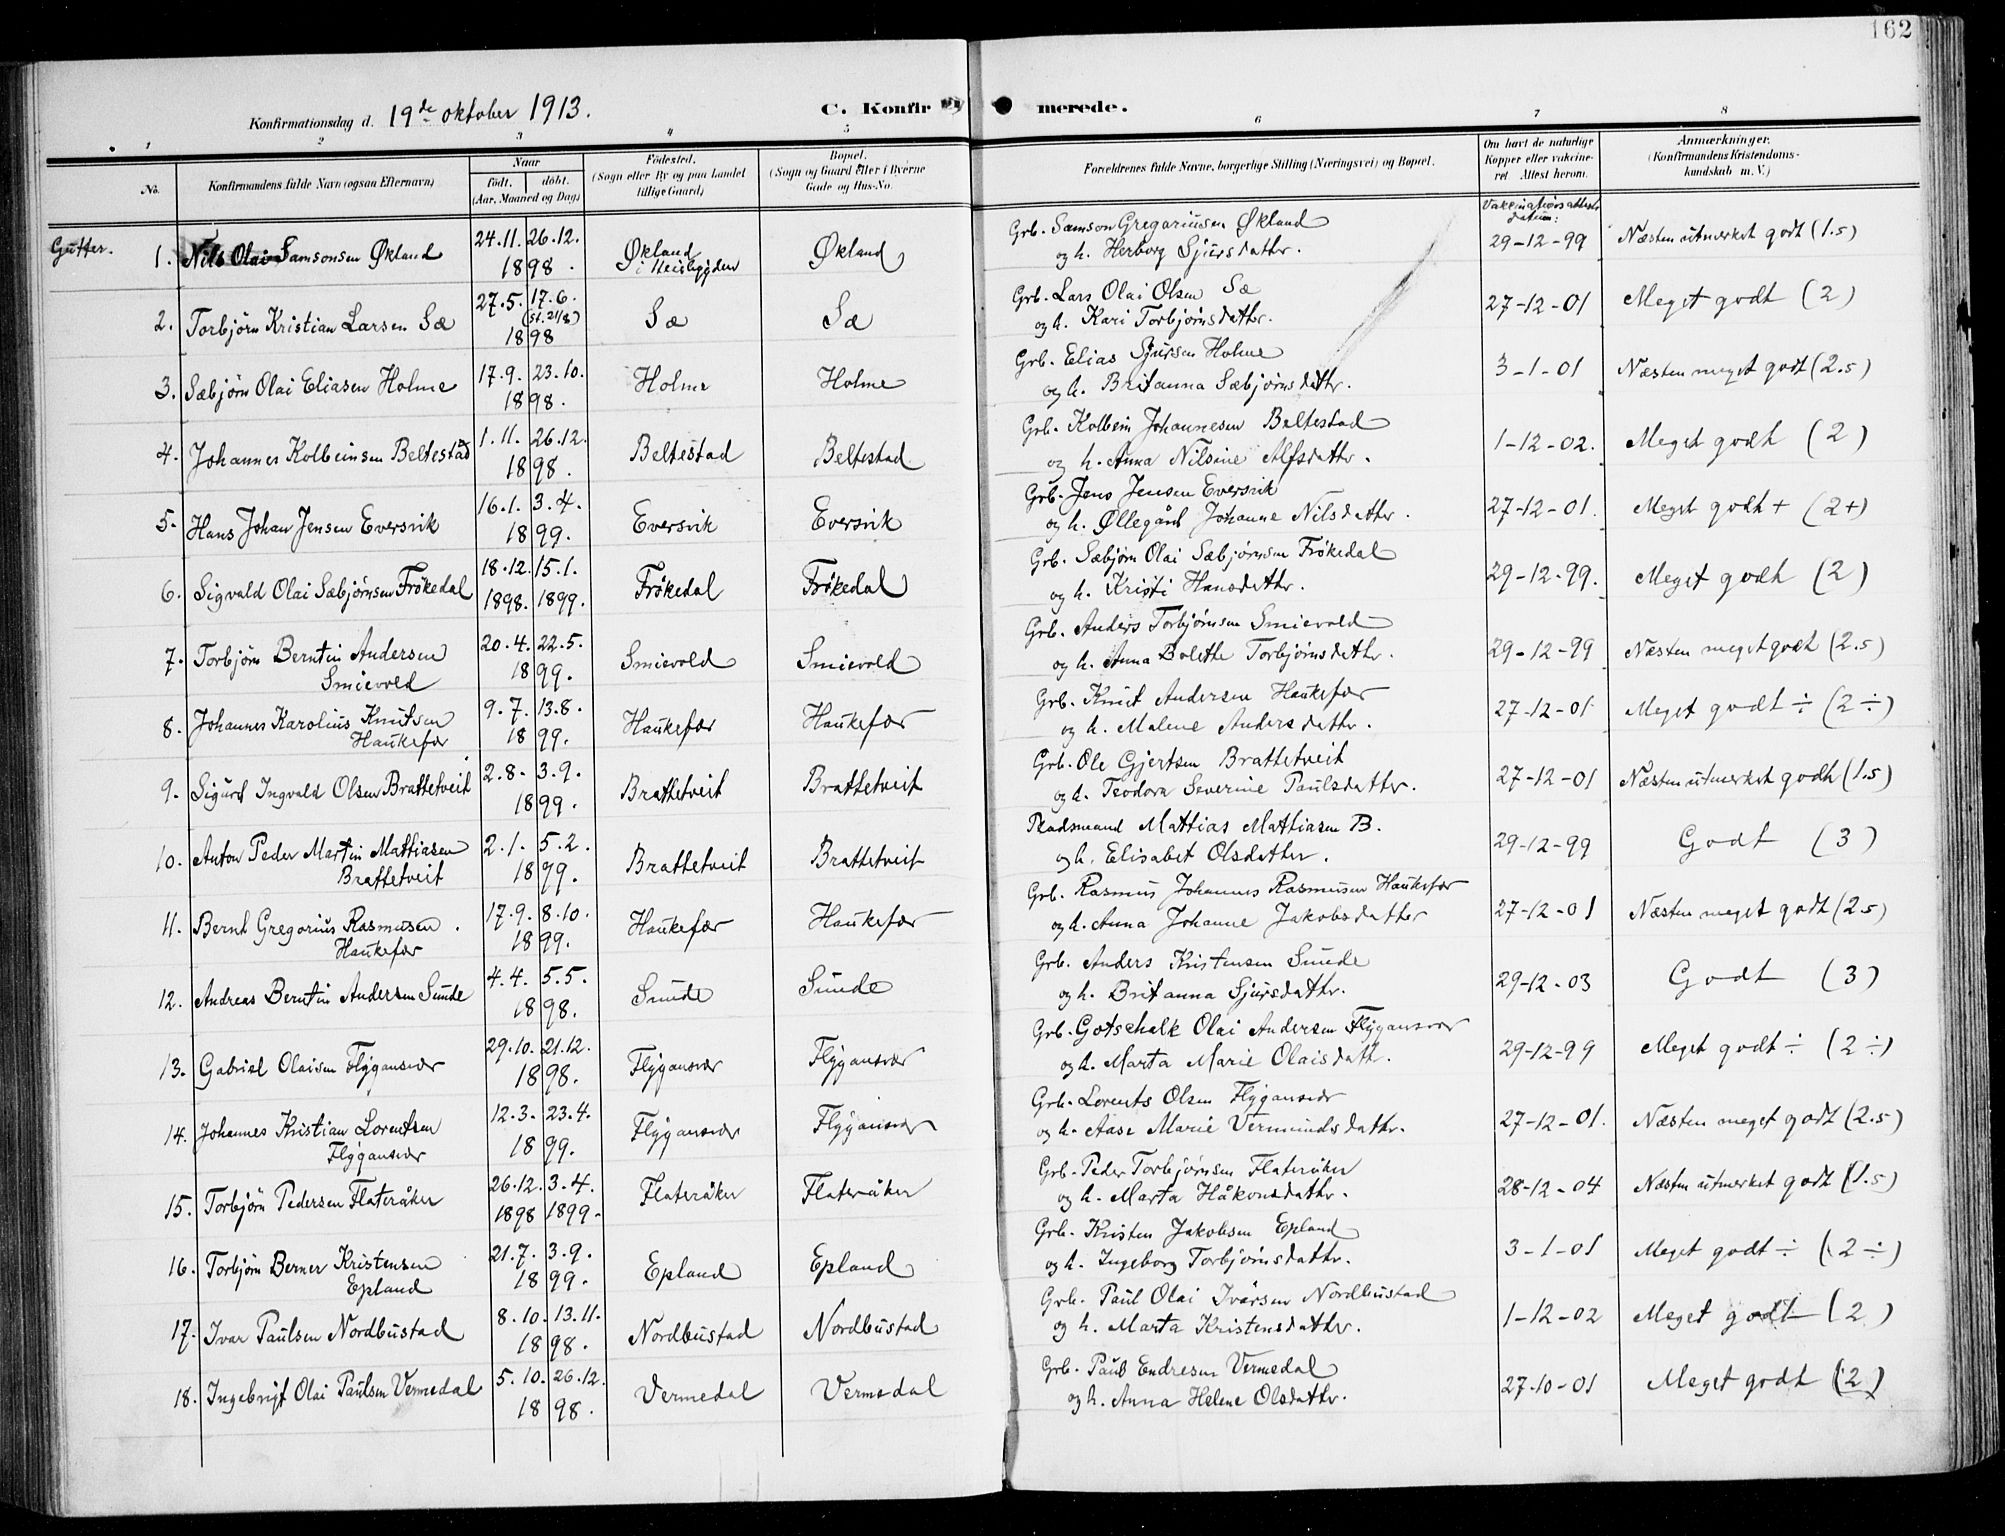 162
Konfirmationsdag d. 19de oktober 1913.
C. Konfir merede.
1 2 3 4 5 6 7 8
No.
Konfirmandens fulde Navn (ogsaa Efternavn)
Naar
født. døbt.
(Aar, Maaned og Dag)
Fødested.
(Sogn eller By og paa Landet
tillige Gaard)
Bopæl.
(Sogn og Gaard eller i Byerne
Gade og Hus-No.
Forældrenes fulde Navne, borgerlige Stilling (Næringsvei) og Bopæl.
Om havt de naturlige
Kopper eller vakcine-
ret Attest herom.
Anmærkninger.
(Konfirmandens Kristendoms-
kundskab m. V.)
Vakcinationsattests
datum:
Gutter.
1. Nils Olai Samsonsen Økland 24.11. 26.12. 1898. Økland Økland Grb. Samson Gregoriussen Økland 29-12-99 Næsten utmerket godt (1.5)
og h. Herborg Sjursdatter.
2. Torbjørn Kristian Larsen Sæ 27.5. 17.6. (st. 21/8) 1898 Sæ Sæ Grb. Lars Olai Olsen Sæ 27-12-01 Meget godt (2)
og h. Kari Torbjørnsdatter.
3. Sæbjørn Olai Eliasen Holme 17.9. 23.10. 1898. Holme Holme Grb. Elias Sjursen Holme 3-1-01 Næsten meget godt (2.5)
og h. Britanna Sæbjørnsdattr.
4. Johannes Kolbeinsen Beltestad 1.11. 26.12. 1898. Beltestad Beltestad Grb. Kolbein Johannesen Beltestad 1-12-02. Meget godt (2)
og h. Anna Nilsine Alfsdattr.
5. Hans Johan Jensen Eversvik 16.1. 3.4. 1899. Eversvik Eversvik Grb. Jens Jensen Eversvik 27-12-01. Meget godt + (2+)
og h. Øllegård Johanne Nilsdattr.
6. Sigvald Olai Sæbjørnsen Frøkedal 18.12. 15.1. 1898. 1899. Frøkedal Frøkedal Grb. Sæbjørn Olai Sæbjørnsen Frøkedal 29-12-99. Meget godt (2)
og h. Kristi Hansdatter.
7. Torbjørn Berntin Andersen 20.4. 22.5. 1899. Smievold Smievold Grb. Anders Torbjørnsen Smievold 29-12-99 Næsten meget godt (2.5)
Smievold og h. Anna Bolette Torbjørnsdattr.
8. Johannes Karolius Knutsen 9.7. 13.8. 1899. Haukefær Haukefær Grb. Knut Andersen Haukefær 27-12-01 Meget godt ÷ (2÷)
Haukefær og h. Malene Andersdattr.
9. Sigurd Ingvald Olsen Brattetveit 2.8. 3.9. 1899. Brattetveit Brattetveit Grb. Ole Gjertsen Brattetveit 27-12-01 Næsten utmerket godt (1.5)
og h. Teodora Severine Paulsdatter.
10. Anton Peder Martin Mattiasen 2.1. 5.2. 1899. Brattetveit Brattetveit Pladsmand Mattias Mattiasen B. 29-12-99 Godt (3)
Brattetveit og h. Elisabet Olsdatter.
11. Bernt Gregorius Rasmusen 17.9. 8.10. 1899. Haukefær Haukefær Grb. Rasmus Johannes Rasmusen Haukefær 27-12-01 Næsten meget godt (2.5)
Haukefær og h. Anna Johanne Jakobsdatter
12. Andreas Berntin Andersen Sunde 4.4. 5.5. 1898. Sunde Sunde Grb. Anders Kristensen Sunde 29-12-03 Godt (3)
og h. Britanna Sjursdattr.
13. Gabriel Olaisen Flygansvær 29.10. 21.12. 1898. Flygansvær Flygansvær Grb. Gotschalk Olai Andersen Flygansvær 29-12-99 Meget godt ÷ (2÷)
og h. Marta Marie Olaisdattr.
14. Johannes Kristian Lorentsen 12.3. 23.4. 1899. Flygansvær Flygansvær Grb. Lorents Olsen Flygansvær 27-12-01. Næsten meget godt (2.5)
Flygansvær og h. Aase Marie Vermundsdattr.
15. Torbjørn Pedersen Flateråker 26.12. 3.4. 1898 1899. Flateråker Flateråker Grb. Peder Torbjørnsen Flateråker 28-12-04 Næsten utmerket godt (1.5)
og h. Marta Håkonsdattr.
16. Torbjørn Berner Kristensen 21.7. 3.9. 1899. Epland Epland Grb. Kristen Jakobsen Epland 3-1-01 Meget godt ÷ (2÷)
Epland og h. Ingeborg Torbjørnsdattr.
17. Ivar Paulsen Nordbustad 8.10. 13.11. 1898. Nordbustad Nordbustad Grb. Paul Olai Ivarsen Nordbustad 1-12-02 Meget godt (2)
og h. Marta Kristensdattr.
18. Ingebrigt Olai Paulsen Vermedal 5.10. 26.12. 1898. Vermedal Vermedal Grb. Paul Endresen Vermedal 27-10-01 Meget godt (2)
og h. Anna Helene Olsdattr.